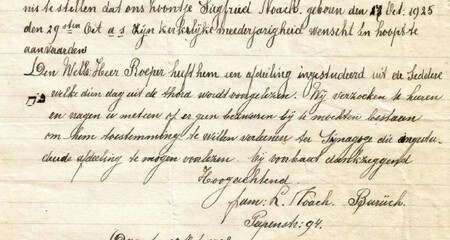 nis te stellen dat ons zoontje Siegfried Noach. geboren den 17 Oct. 1925
den 29sten Oct a s zijn kerkelijke meerderjarigheid wenscht en hoopt te
aanvaarden
Den Heer Roeper heeft hem een afdeeling ingestudeerd uit de Seddere
welke dien dag uit de thora wordt voorgelezen. Wij verzoeken te
en vragen u meteen of er geen bezwaren bij te mochten bestaan
om hem toestemming te willen verleenen ter Synagoge die ingestu-
deerde afdeeling te mogen voorlezen. bij voorbaat dankzeggend
Hoogachtend.
fam: L. Noach. Baruch.
Papenstr: 94.